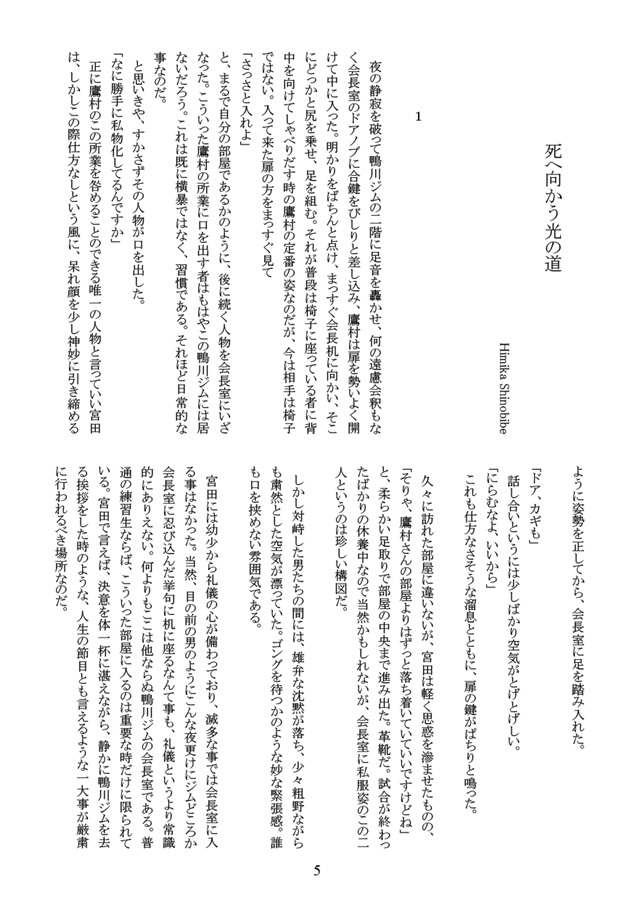 死へ向かう光の道
Himika Shinobibe
1
夜の静寂を破って鴨川ジムの二階に足音を轟かせ、何の遠慮会釈もな
く会長室のドアノブに合鍵をびしりと差し込み、鷹村は扉を勢いよく開
けて中に入った。明かりをぱちんと点け、まっすぐ会長机に向かい、そこ
にどっかと尻を乗せ、足を組む。それが普段は椅子に座っている者に背
中を向けてしゃべりだす時の鷹村の定番の姿なのだが、今は相手は椅子
ではない。入って来た扉の方をまっすぐ見て
「さっさと入れよ」
と、まるで自分の部屋であるかのように、後に続く人物を会長室にいざ
なった。こういった鷹村の所業に口を出す者はもはやこの鴨川ジムには居
ないだろう。これは既に横暴ではなく、習慣である。それほど日常的な
事なのだ。
と思いきや、すかさずその人物が口を出した。
「なに勝手に私物化してるんですか」
正に鷹村のこの所業を咎めることのできる唯一の人物と言っていい宮田
は、しかしこの際仕方なしという風に、呆れ顔を少し神妙に引き締める
ように姿勢を正してから、会長室に足を踏み入れた。
「ドア、カギも」
話し合いというには少しばかり空気がとげとげしい。
「にらむなよ、いいから」
これも仕方なさそうな溜息とともに、扉の鍵がぱちりと鳴った。
久々に訪れた部屋に違いないが、宮田は軽く思惑を滲ませたものの、
「そりゃ、鷹村さんの部屋よりはずっと落ち着いていていいですけどね」
と、柔らかい足取りで部屋の中央まで進み出た。革靴だ。試合が終わっ
たばかりの休養中なので当然かもしれないが、会長室に私服姿のこの二
人というのは珍しい構図だ。
しかし対峙した男たちの間には、雄弁な沈黙が落ち、少々粗野ながら
も粛然とした空気が漂っていた。ゴングを待つかのような妙な緊張感。誰
も口を挟めない雰囲気である。
宮田には幼少から礼儀の心が備わっており、滅多な事では会長室に入
る事はなかった。当然、目の前の男のようにこんな夜更けにジムどころか
会長室に忍び込んだ挙句に机に座るなんて事も、礼儀というより常識
的にありえない。何よりもここは他ならぬ鴨川ジムの会長室である。普
通の練習生ならば、こういった部屋に入るのは重要な時だけに限られて
いる。宮田で言えば、決意を体一杯に湛えながら、静かに鴨川ジムを去
る挨拶をした時のような、人生の節目とも言えるような一大事が厳粛
に行われるべき場所なのだ。
5